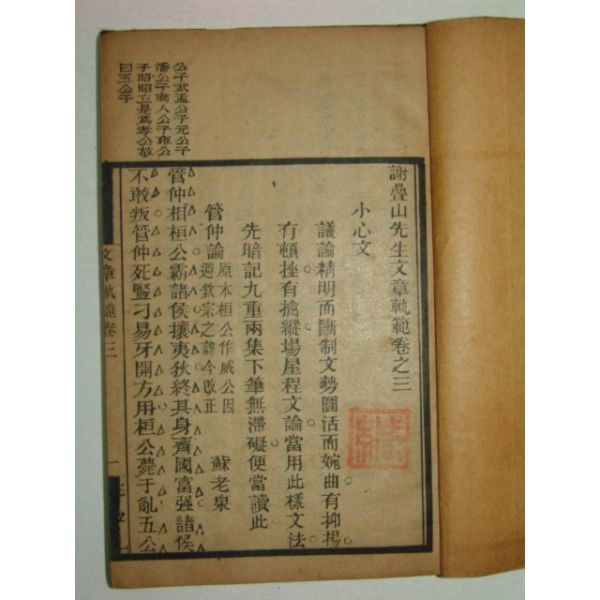 謝疊山先生文章軌範卷之三
小心文
議論精明而斷制文勢圓活而婉曲有抑揚
有頓挫有擒縱場屋程文論當用此樣文法
先暗記九重兩集下筆無滯礙便當讀此
管仲論 原本桓公作威公因避欽宗之諱今改正 蘇老泉
管仲相桓公霸諸侯攘夷狄終其身齊國富强諸侯
不敢叛管仲死豎刁易牙開方用桓公薨于亂五公
公子武孟公子元公子
潘公子商人公子雍公
子昭昭立是爲孝公故
曰五公子
文章軌範卷三